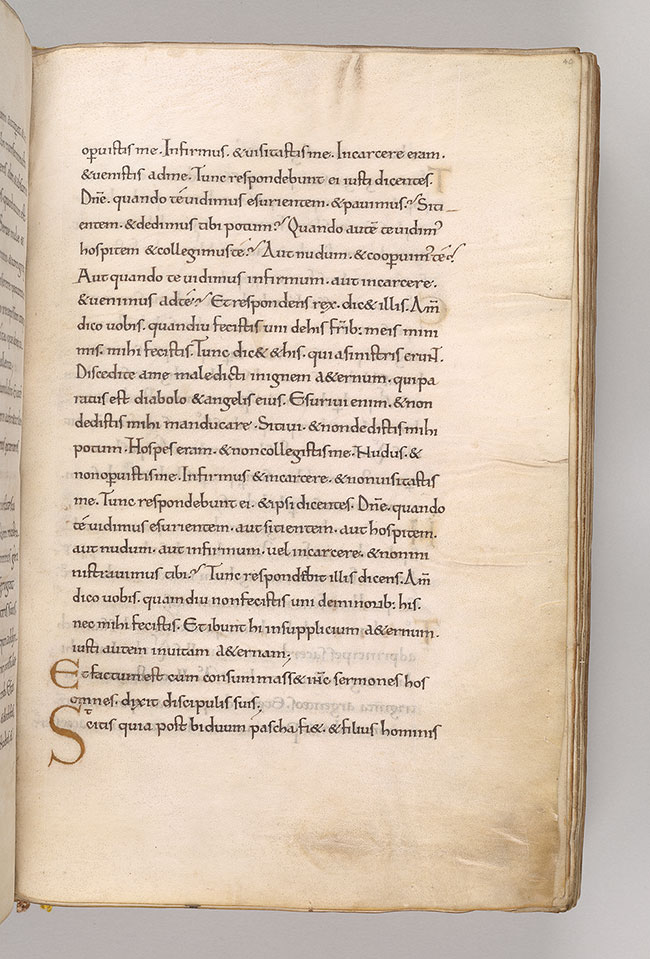 40
opuistis me. Infirmus. & uisitastis me. Incarcere eram.
& uenistis ad me. Tunc respondebunt ei iusti dicentes.
Dñe. quando te uidimus esurientem. & pauimus? Siti
entem. & dedimus tibi potum? Quando autē te uidim᷒
hospitem & collegimus te? Aut nudum. & cooperuim᷒ te?
Aut quando te uidimus infirmum. aut incarcere.
& uenimus ad te? Et respondens rex. dic& illis. Am̄
dico uobis. quandiu fecistis uni de his fr̄ib: meis mini
mis. mihi fecistis. Tunc dic& & his. qui a sinistris erunt.
Discedite a me maledicti in ignem a&ernum. qui pa
ratus est diabolo & angelis eius. Esuriui enim. & non
dedistis mihi manducare. Sitiui. & non dedistis mihi
potum. Hospes eram. & non collegistis me. Nudus. &
non opuistis me. Infirmus & incarcere. & non uisitastis
me. Tunc respondebunt ei. & ipsi dicentes. Dñe. quando
te uidimus esurientem. aut sitientem. aut hospitem.
aut nudum. aut infirmum. uel incarcere. & non mi
nistrauimus tibi? Tunc respondebit illis dicens. Am̄
dico uobis. quamdiu non fecistis uni de minorib: his.
nec mihi fecistis. Et ibunt hi in supplicium a&ernum.
iusti autem in uitam a&ernam;
Et factum est cum consummass& ih̄c sermones hos
omnes. dixit discipulis suis;
Scitis quia post biduum pascha fi&. & filius hominis